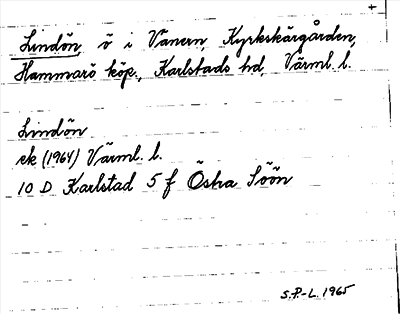 Lindön, ö i Vänern, Kyrkskärgården,
Hammarö köp., Karlstads hd, Värml. l.
Lindön
ek (1964) Värml. l.
10 D Karlstad 5 f Östra Söön
S.P.-L. 1965